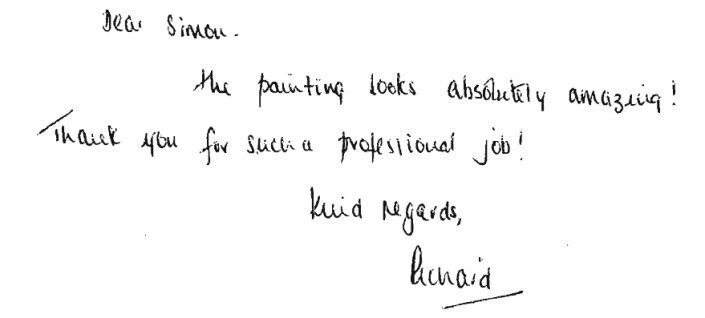 Dear Simon.
the painting looks absolutely amazing!
Thank you for such a professional job!
Kind regards,
Richard